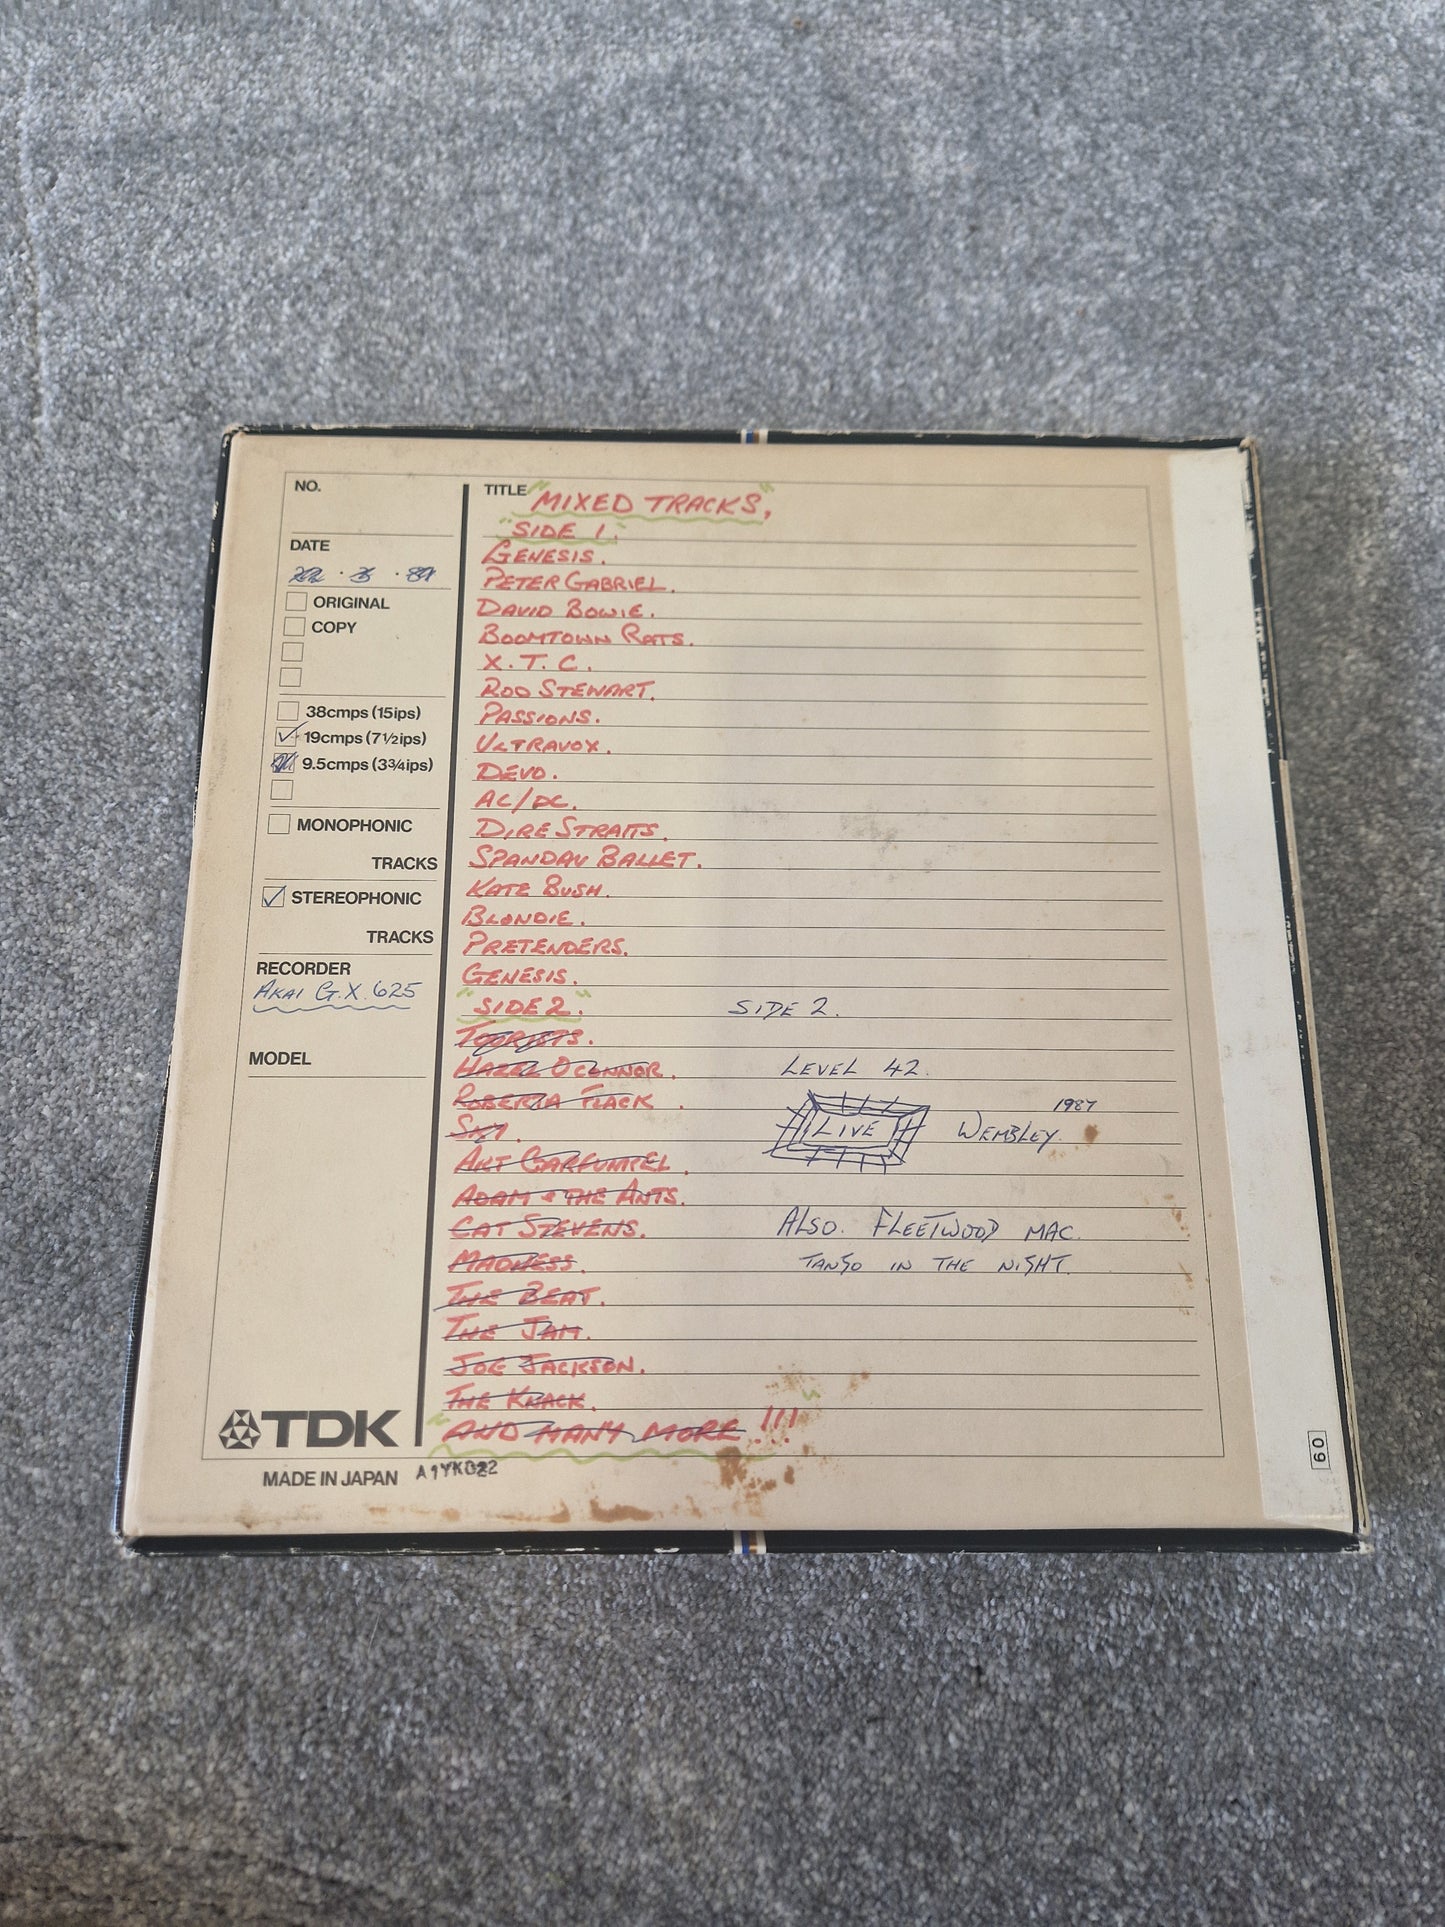 NO.
DATE
ORIGINAL
COPY
38cmps (15ips)
19cmps (7½ips)
9.5cmps (3¾ips)
MONOPHONIC
TRACKS
STEREOPHONIC
TRACKS
RECORDER
AKAI G.X. 625
MODEL
TDK
MADE IN JAPAN A1YK022
TITLE "MIXED TRACKS",
"SIDE 1".
GENESIS.
PETER GABRIEL.
DAVID BOWIE.
BOOMTOWN RATS.
X.T.C.
ROD STEWART.
PASSIONS.
ULTRAVOX.
DEVO.
AC/DC.
DIRE STRAITS.
SPANDAU BALLET.
KATE BUSH.
BLONDIE.
PRETENDERS.
GENESIS.
"SIDE 2".
TOURISTS.
HAZEL O'CONNOR.
ROBERTA FLACK.
ART GARFUNKEL.
ADAM & THE ANTS.
CAT STEVENS.
MADNESS.
THE BEAT.
THE JAM.
JOE JACKSON.
THE KNACK.
"AND MANY MORE!!!"
SIDE 2.
LEVEL 42.
LIVE WEMBLEY. 1987
ALSO. FLEETWOOD MAC.
TANGO IN THE NIGHT.
60